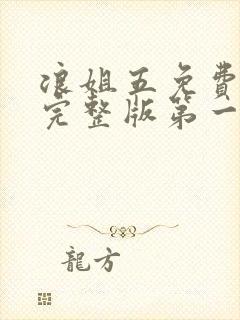 浪姐五免費
完整版第一
龍方